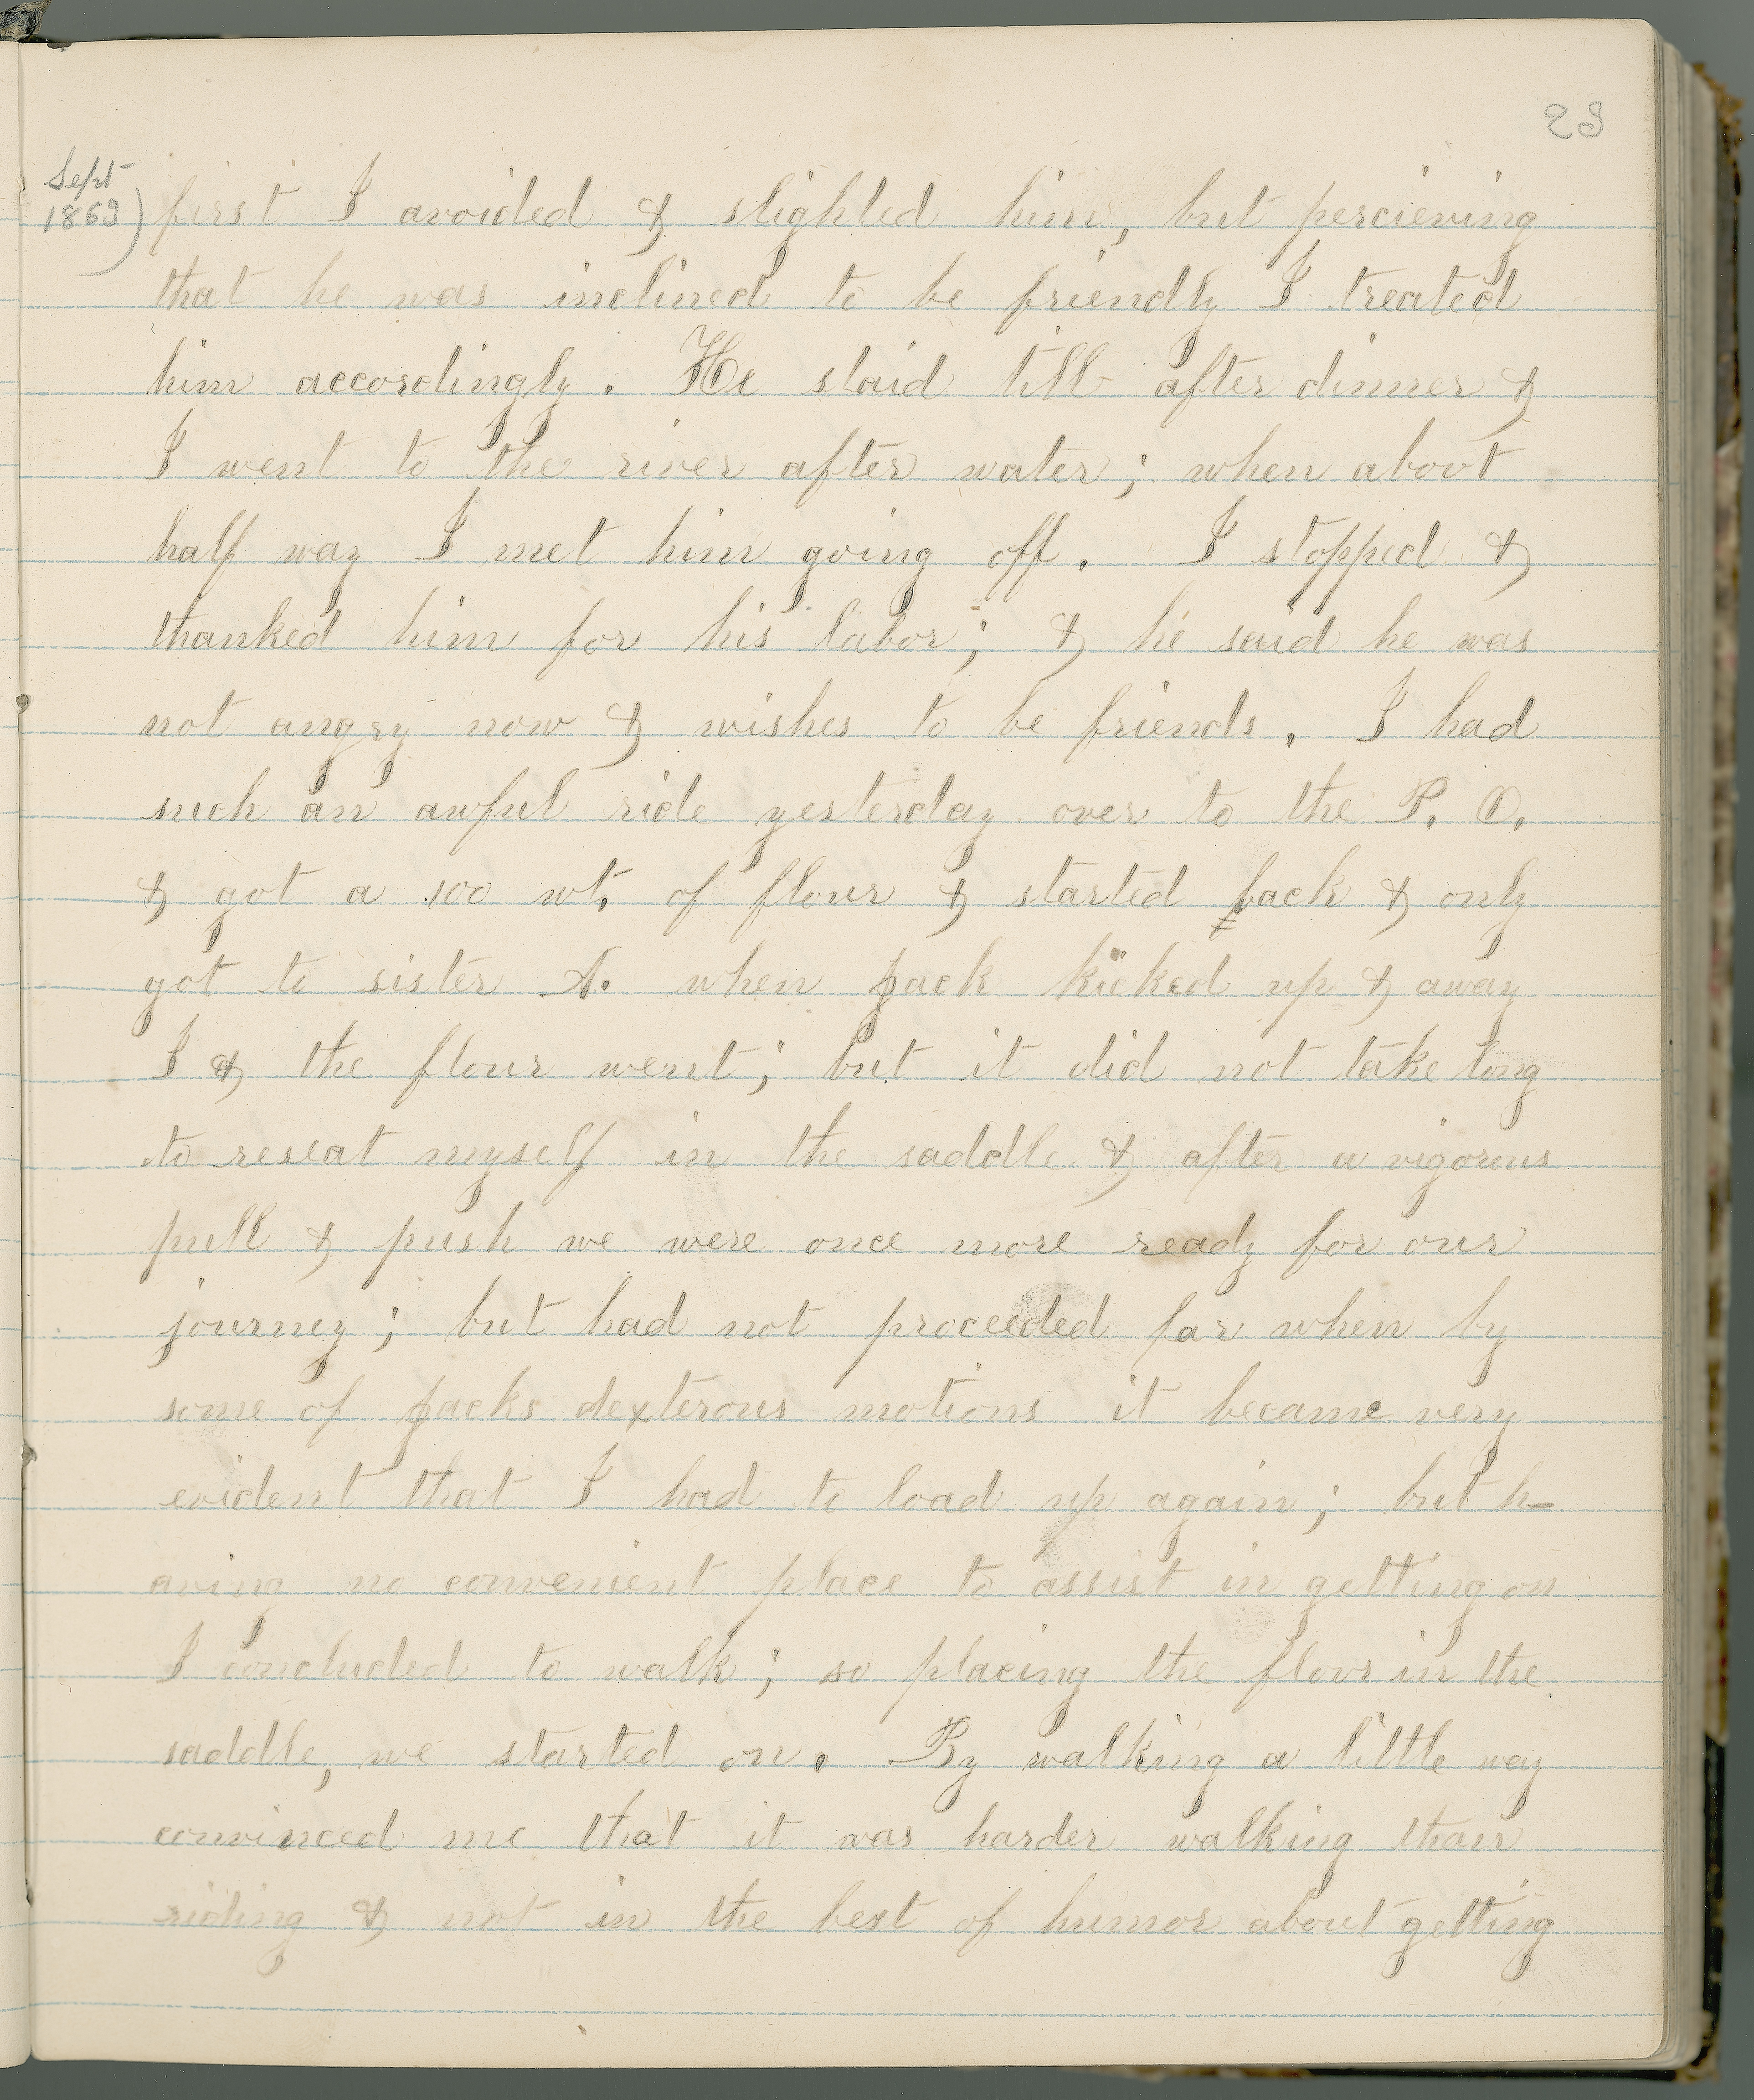 29
Sept
1869)
first I avoided & slighted him, but percieving
that he was inclined to be friendly I treated
him accordingly. He staid till after dinner &
I went to the river after water; when about
half way I met him going off. I stopped &
thanked him for his labor; & he said he was
not angry now & wishes to be friends. I had
such an awful ride yesterday over to the P. O.
& got a 100 wt. of flour & started back & only
got to sister A. when jack kicked up & away
I & the flour went; but it did not take long
to reseat myself in the saddle & after a vigorous
pull & push we were once more ready for our
journey; but had not proceeded far when by
some of jacks dexterous motions it became very
evident that I had to load up again; but h-
aving no convenient place to assist in getting on
I concluded to walk; so placing the flour in the
saddle, we started on. By walking a little way
convinced me that it was harder walking than
riding & not in the best of humor about getting